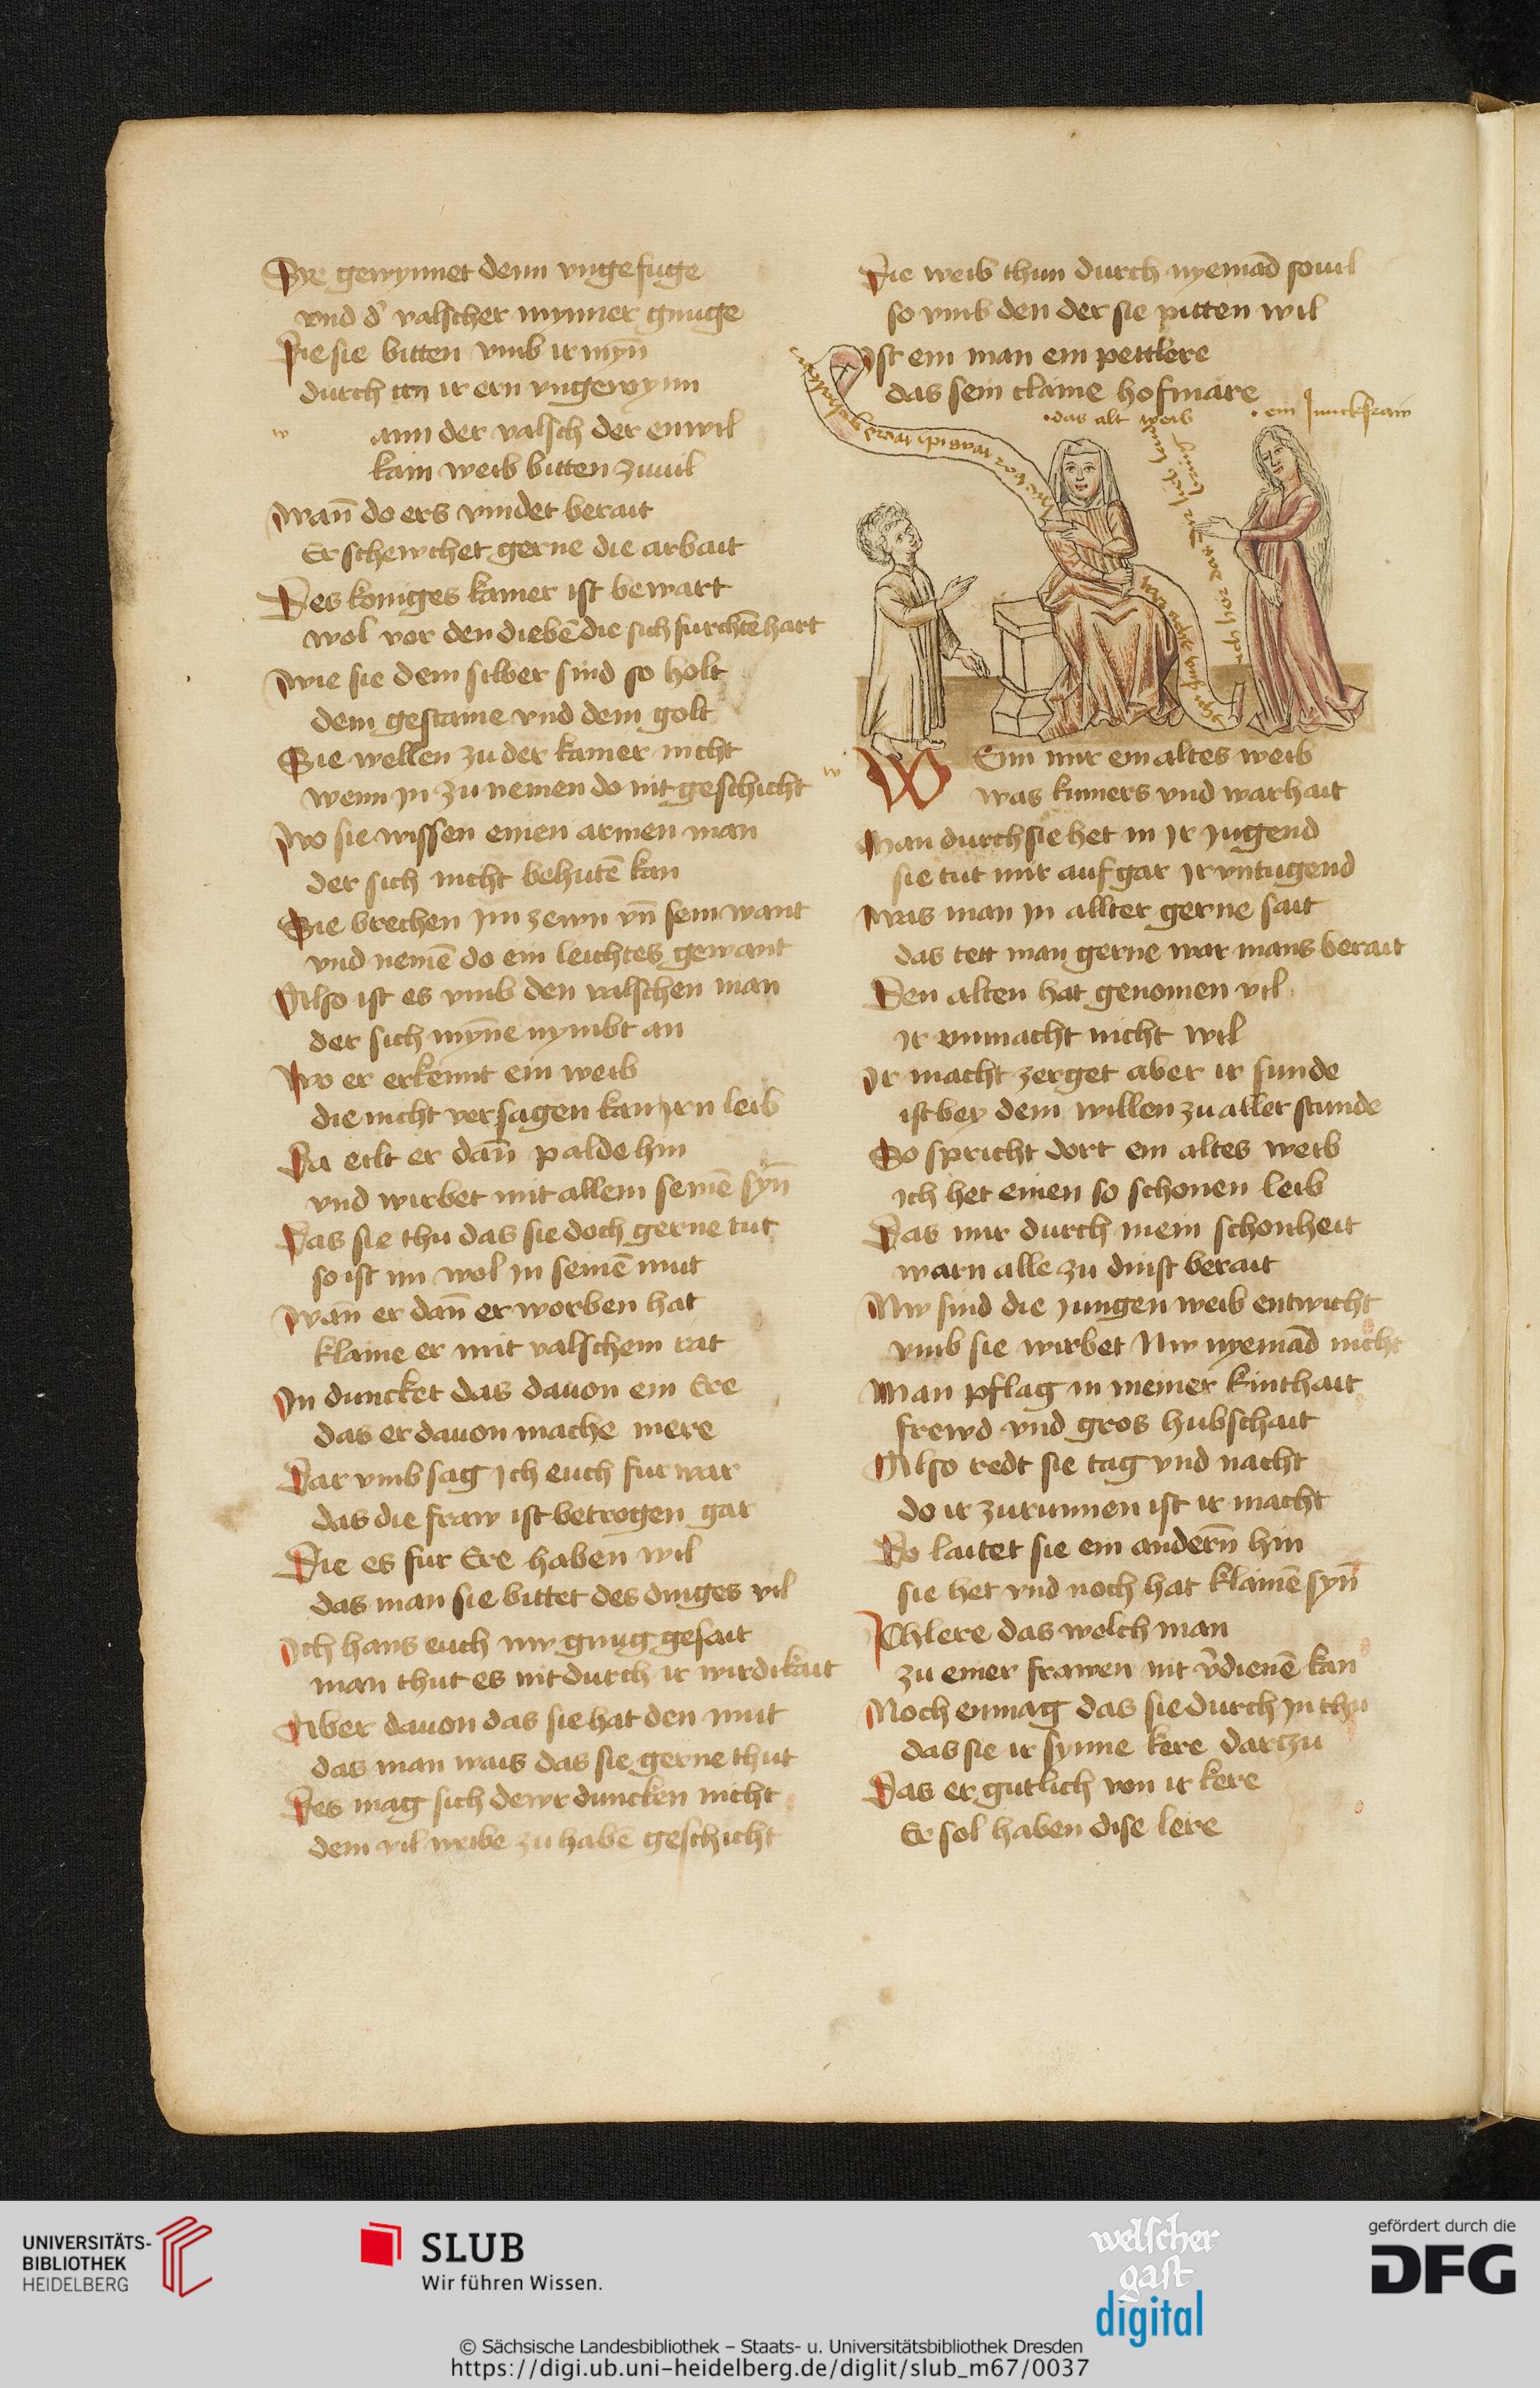 Sye gewynnet denn vngefuge
vnd d' valscher mynner gnuge
Die sie bitten vmb ir myn̄
durch ir ern vngewynn
w
ann der valsch der enwil
kain weib bitten zuuil
Wan̄ do ers vindet berait
Er schewchet gerne die arbait
Des koniges kamer ist bewart
wol vor den diebē die sich furchtē hart
Wie sie dem silber sind so holt
dem gestaine vnd dem golt
Sie wellen zu der kamer nicht
wenn jn zu nemen do nit geschicht
Wo sie wissen einen armen man
der sich nicht behutē kan
Sie brechen jm zewn vn̄ sein want
vnd nemē do ein leichtes gewant
Also ist es vmb den valschen man
der sich myn̄e nymbt an
Wo er erkennt ein weib
die nicht versagen kan jrn leib
Da eilt er dan̄ palde hin
vnd wirbet mit allem seinē syn̄
Das sie thu das sie doch gerne tut
so ist im wol jn seinē mut
Wan̄ er dan̄ erworben hat
klaine er mit valschem rat
In duncket das dauon ein Ere
das er dauon mache mere
Dar vmb sag jch euch fur war
das die fraw ist betrogen gar
Die es fur Ere haben wil
das man sie bittet des dinges vil
Ich hans euch nw gnug gesait
man thut es nit durch ir wirdikait
Aber dauon das sie hat den mut
das man wais das sie gerne thut
Des mag sich dewr duncken nicht
dem vil weibe zu habē geschicht
Die weib thun durch nyemād souil
so vmb den der sie pitten wil
Ist ein man ein pettlere
das sein claine hofmare
·das alt weib
·ein junckfraw
w
Enn mir ein altes weib
was kumers vnd warhait
Man durch sie het in jr jugend
sie tut mir auf gar jr vntugend
Was man jn allter gerne sait
das tett man gerne war mans berait
Den alten hat genomen vil
jr vnmacht nicht wil
Ir macht zerget aber ir sunde
ist bey dem willen zu aller stunde
So spricht dort ein altes weib
jch het einen so schonen leib
Das mir durch mein schonheit
warn alle zu dinst berait
Nw sind die jungen weib entwicht
vmb sie wirbet Nw nyemād nicht
Man pflag in meiner kinthait
frewd vnd gros hubschait
Also redt sie tag vnd nacht
do ir zurunnen ist ir macht
Do laitet sie ein andern̄ hin
sie het vnd noch hat klainē syn̄
Ich lere das wolch man
zu einer frawen nit v̄dienē kan
Noch enmag das sie durch jn thu
das sie ir synne kere darzu
Das er gutlich von ir kere
Er sol haben dise lere
UNIVERSITÄTS-
BIBLIOTHEK
HEIDELBERG
SLUB
Wir führen Wissen.
welscher
gast
digital
gefördert durch die
DFG
© Sächsische Landesbibliothek – Staats- u. Universitätsbibliothek Dresden
https://digi.ub.uni-heidelberg.de/diglit/slub_m67/0037